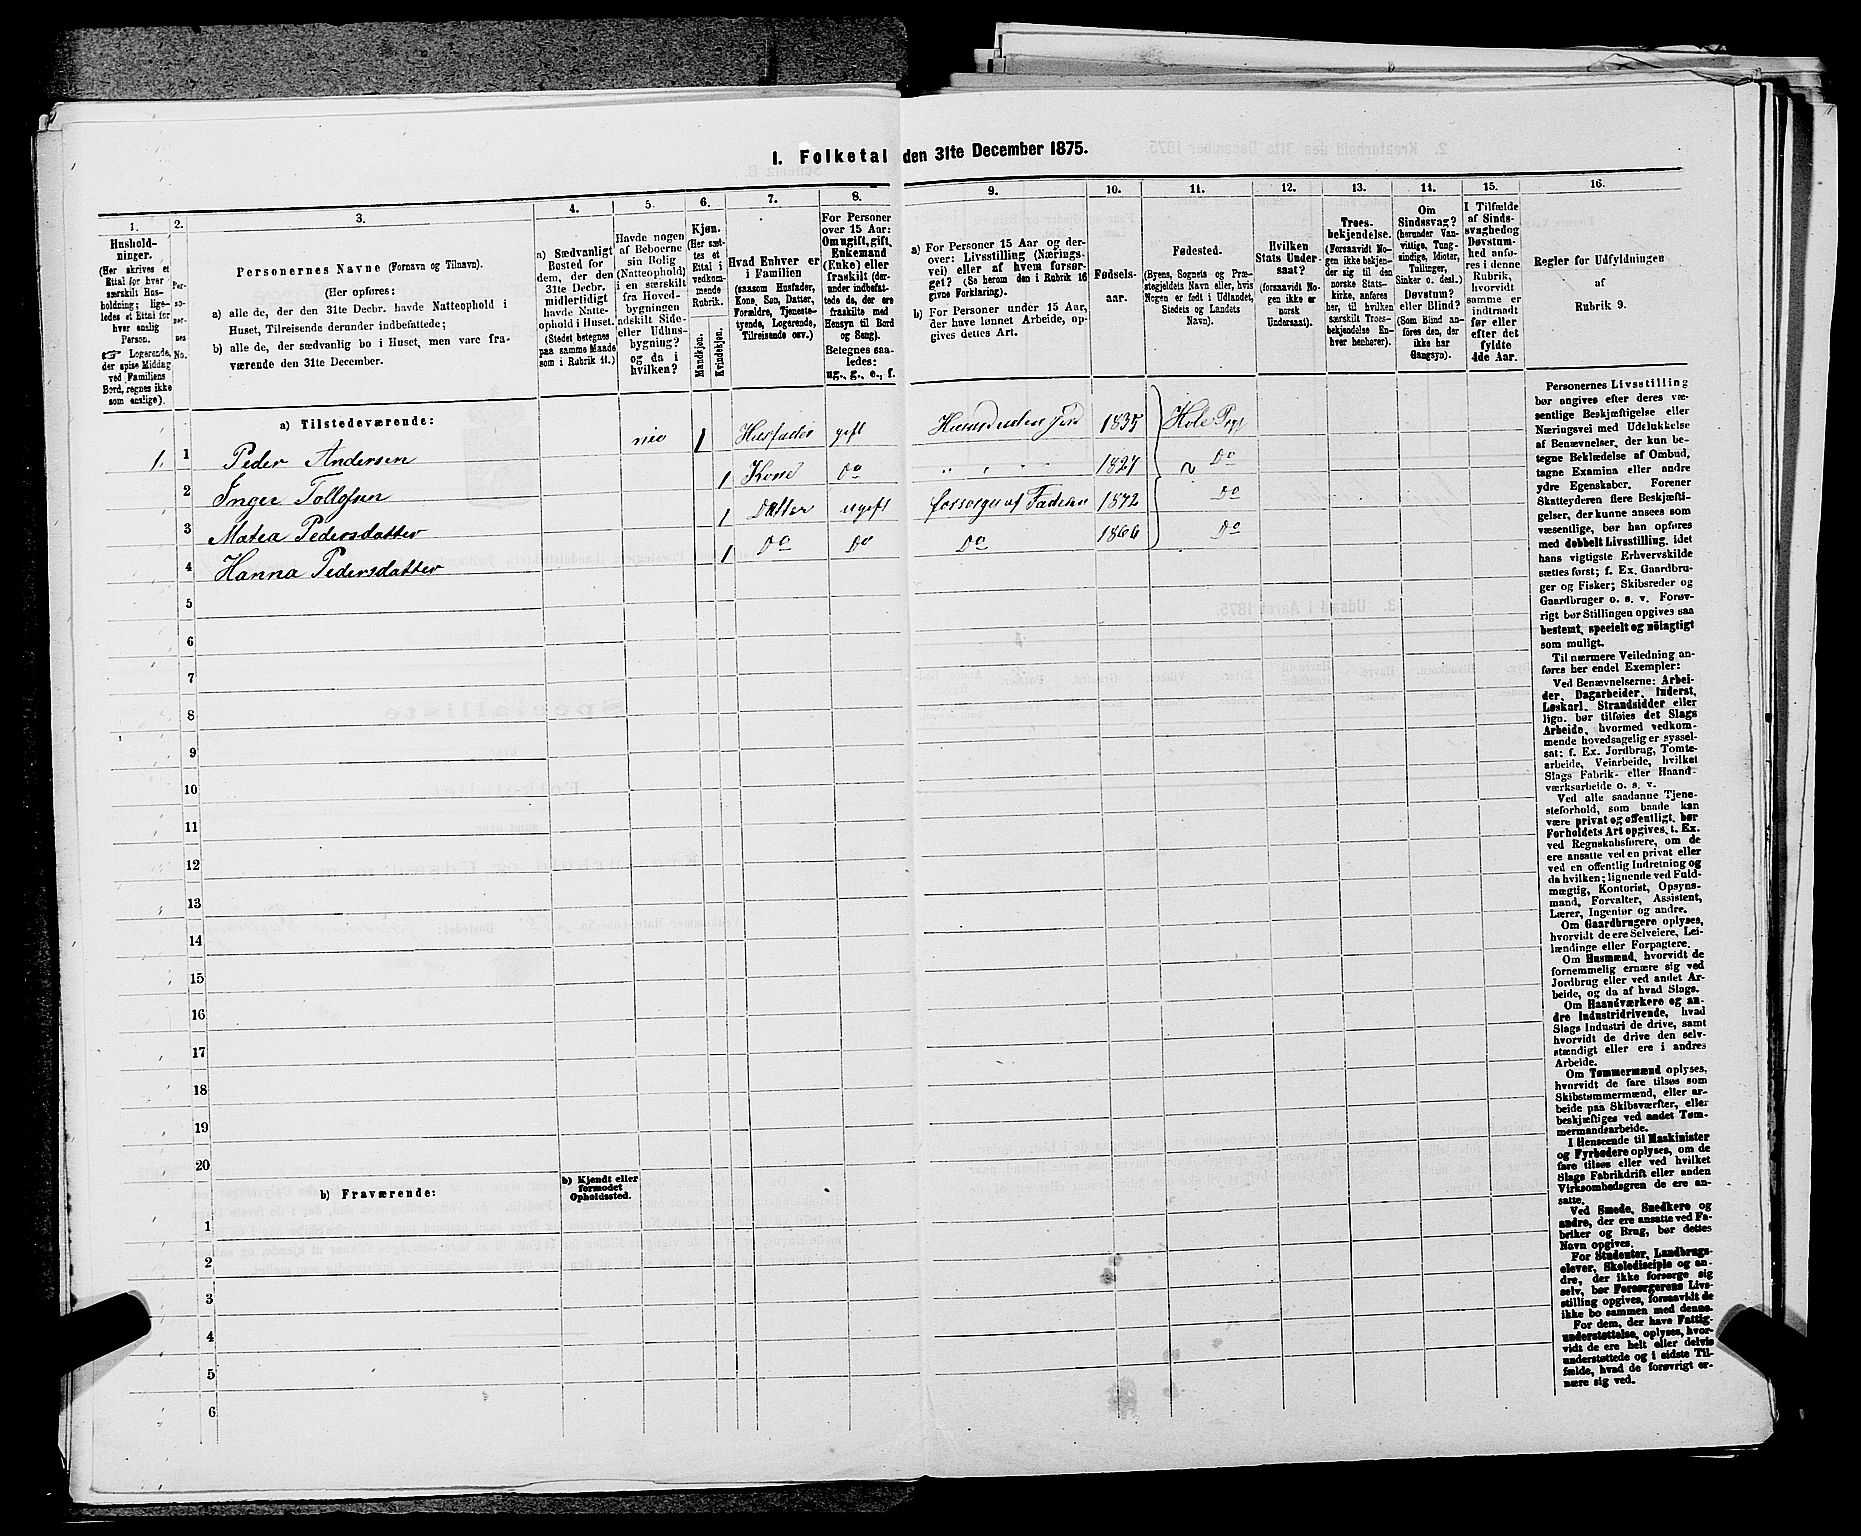 I. Folketal den 31te December 1875.
1. 2. 3. 4. 5. 6. 7. 8. 9. 10. 11. 12. 13. 14. 15. 16.
Husholdninger.
(Her skrives et
Ettal for hver
særskilt Husholdning;
ligeledes
et Ettal for
hver enslig
Person.
☞ Logerende,
der spise Middag
ved Familiens
Bord, regnes ikke
som enslige).
Personernes No.
Personernes Navne (Fornavn og Tilnavn).
(Her opføres:
a) alle de, der den 31te Decbr. havde Natteophold i
Huset, Tilreisende derunder indbefattede;
b) alle de, der sædvanlig bo i Huset, men vare fraværende
den 31te December.
a) Sædvanligt
Bosted for
dem, der den
31te Decbr.
midlertidigt
havde Natteophold
i Huset.
(Stedet betegnes
paa samme Maade
som i Rubrik 11.)
Havde nogen
af Beboerne
sin Bolig
(Natteophold)
i en særskilt
fra Hovedbygningen
adskilt Side-
eller Udhusbygning?
og da i
hvilken?
Kjøn.
(Her sættes
et Ettal i
vedkommende
Rubrik.
Mandkjøn.
Kvindekjøn.
Hvad Enhver er
i Familien
(saasom Husfader,
Kone, Søn, Datter,
Forældre, Tjenestetyende,
Logerende,
Tilreisende osv.)
For Personer
over 15 Aar:
Om ugift, gift,
Enkemand
(Enke) eller
fraskilt (derunder
indbefattede
de, der ere
fraskilte med
Hensyn til Bord
og Seng).
Betegnes saaledes:
ug., g., e., f.
a) For Personer 15 Aar og derover:
Livsstilling (Næringsvei)
eller af hvem forsørget?
(Se herom den i Rubrik 16
givne Forklaring).
b) For Personer under 15 Aar,
der have lønnet Arbeide, opgives
dettes Art.
Fødselsaar.
Fødested.
(Byens, Sognets og Præstegjeldets
Navn eller, hvis
Nogen er født i Udlandet,
Stedets og Landets
Navn).
Hvilken
Stats Undersaat?
(forsaavidt Nogen
ikke er
norsk
Undersaat).
Troesbekjendelse.
(Forsaavidt Nogen
ikke bekjender
sig til den
norske Statskirke,
anføres
her, til hvilken
særskilt Troesbekjendelse
Enhver
henhører).
Om
Sindssvag?
(herunder Vanvittige,
Tungsindige,
Idioter,
Tullinger,
Sinker o. desl.)
Døvstum?
eller Blind?
(Som Blind anføres
den, der
ikke har
Gangsyn).
I Tilfælde
af Sindssvaghed
og
Døvstumhed
anføres
i denne
Rubrik,
hvorvidt
samme er
indtraadt
før eller
efter det
fyldte
4de Aar.
Regler for Udfyldningen
af
Rubrik 9.
a) Tilstedeværende:
1. 1 Peder Andersen 1 Husfader gift 1835 Hole Pgj
2 Inger Tollefsen 1 Kone Do 1827 Do
3 Matea Pedersdatter 1 Datter ugift forsørges af Faderen 1872 Do
4 Hanna Pedersdatter 1 Do Do Do 1866 Do
5
6
7
8
9
10
11
12
13
14
15
16
17
18
19
20
b) Fraværende:
b) Kjendt eller
formodet
Opholdssted.
1
2
3
4
5
6
Personernes Livsstilling
bør angives efter deres væsentlige
Beskjæftigelse eller
Næringsvei med Udelukkelse
af Benævnelser, der kun betegne
Beklædelse af Ombud,
tagne Examina eller andre
ydre Egenskaber. Forener
Skatteyderen flere Beskjæftigelser,
der kunne ansees som
væsentlige, bør han opføres
med dobbelt Livsstilling, idet
hans vigtigste Erhvervskilde
sættes først; f. Ex. Gaardbruger
og Fisker; Skibsreder og
Gaardbruger o. s. v. Forøvrigt
bør Stillingen opgives saa
bestemt, specielt og nöiagtigt
som muligt.
Til nærmere Veiledning anføres
her endel Exempler:
Ved Benævnelserne: Arbeider,
Dagarbeider, Inderst,
Løskarl, Strandsidder eller
lign. bør tilføies det Slags
Arbeide, hvormed vedkommende
hovedsagelig er sysselsat;
f. Ex. Jordbrug, Tomtearbeide,
Veiarbeide, hvilket
Slags Fabrik- eller Haandværksarbeide
o. s. v.
Ved alle saadanne Tjenesteforhold,
som baade kan
være privat og offentligt, bør
Forholdets Art opgives, t. Ex.
ved Regnskabsførere, om de
ere ansatte ved en privat eller
ved en offentlig Indretning og
da hvilken; lignende ved Fuldmægtig,
Kontorist, Opsynsmand,
Forvalter, Assistent,
Lærer, Ingeniør og andre.
Om Gaardbrugere oplyses,
hvorvidt de ere Selveiere, Leilændinge
eller Forpagtere.
Om Husmænd, hvorvidt de
fornemmelig ernære sig ved
Jordbrug eller ved andet Arbeide,
og da af hvad Slags.
Om Haandværkere og andre
Industridrivende, hvad
Slags Industri de drive, samt
hvorvidt de drive den selvstændigt
eller ere i andres
Arbeide.
Om Tømmermænd oplyses,
hvorvidt de fare tilsøs som
Skibstømmermænd, eller arbeide
paa Skibsværfter, eller
beskjæftiges ved andet Tømmermandsarbeide.
I Henseende til Maskinister
og Fyrbødere oplyses, om de
fare tilsøs eller ved hvilket
Slags Fabrikdrift eller anden
Virksomhedsgren de ere ansatte.
Ved Smede, Snedkere og
andre, der ere ansatte ved Fabriker
og Brug, bør dettes
Navn opgives.
For Studenter, Landbrugselever,
Skoledisciple og andre,
der ikke forsørge sig
selv, bør Forsørgerens Livsstilling
opgives, forsaavidt de
ikke bo sammen med denne.
For dem, der have Fattigunderstøttelse,
oplyses, hvorvidt
de ere helt eller delvis
understøttede og i sidste Tilfælde,
hvad de forøvrigt ernære
sig ved.